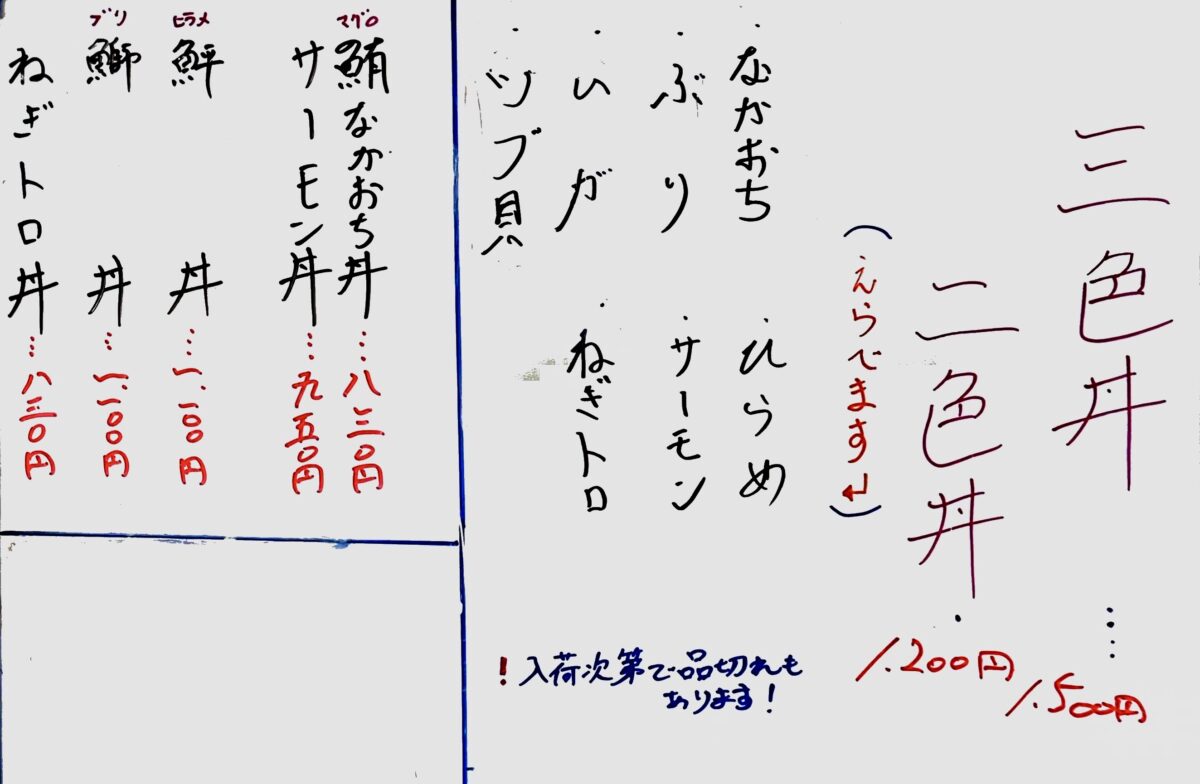 三色丼‥‥1.500円
二色丼・1.200円
（えらべます↲）
なかおち
・ひらめ
・ぶり
・サーモン
・いガ
・ねぎトロ
・ツブ貝
！入荷次第で品切れも
あります！
マグロ
鮪なかおち丼…八三〇円
サーモン丼…九五〇円
ヒラメ
鮃丼…一.一〇〇円
ブリ
鰤丼…一.一〇〇円
ねぎトロ丼…八三〇円